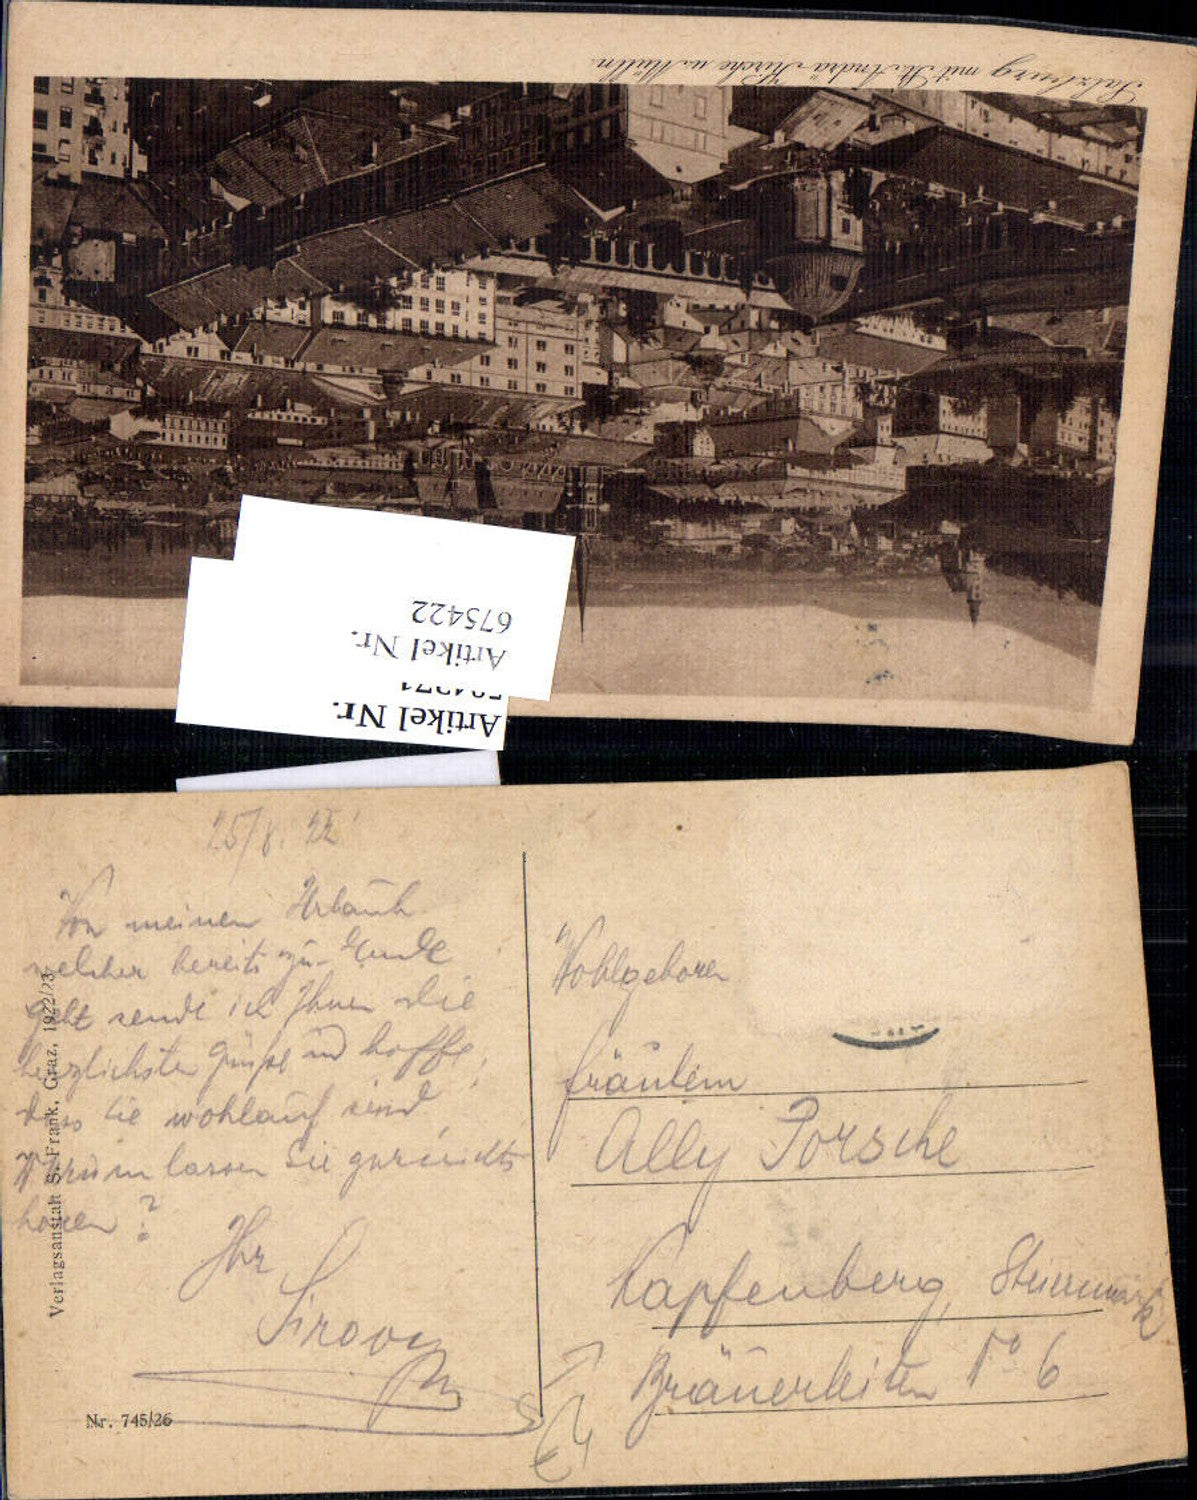 Salzburg mit St. Andrä Kirche u. Mülln.
Artikel Nr.
675422
Artikel Nr.
25/8. 22
Von meinen Urlaub
welcher bereits zu Ende
geht sende ich Ihnen die
herzlichsten Grüße und hoffe,
dass Sie wohlauf sind,
Warum lassen Sie garnichts
hören?
Ihr
Sirovy
Verlagsanstalt S. Frank, Graz, 1922/23
Nr. 745/26
Wohlgeboren
Fräulein
Ally Porsche
Kapfenberg, Steiermark
Bräuerleiten No 6